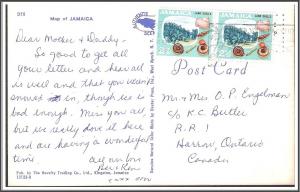 D15
Map of JAMAICA
JAMAICA
JAMAICA
Dear Mother & Daddy-
So good to get all
your letter and hear all
is well and that you weren
snowed in, though ice is
bad enough. Miss you all
but we really love it here
and are having a wonderful
time
all our love
Post Card
Mr. & Mrs O. P. Engelman
% K.C. Butler
R.R. 1
Harrow, Ontario
Canada
Pub. by The Novelty Trading Co., Ltd., Kingston, Jamaica